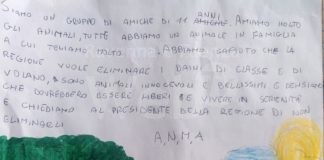 SIAMO UN GRUPPO DI AMICHE DI 11 ANNI. AMIAMO MOLTO
GLI ANIMALI, TUTTE ABBIAMO UN ANIMALE IN FAMIGLIA
A CUI TENIAMO MOLTO. ABBIAMO SAPUTO CHE LA
REGIONE VUOLE ELIMINARE I DAINI DI CLASSE E DI
VOLANO, SONO ANIMALI INNOCEVOLI E BELLISSIMI E PENSIAMO
CHE DOVREBBERO ESSERE LIBERI E VIVERE IN SERENITÀ
E CHIEDIAMO AL PRESIDENTE DELLA REGIONE DI NON
ELIMINARLI
A,N,M,A